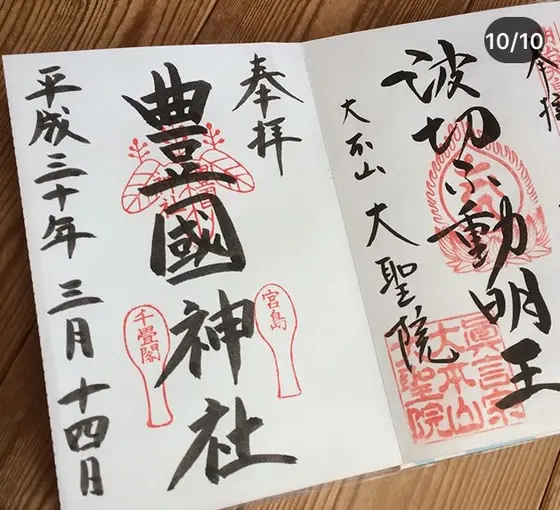 10/10
奉拝
豊國神社
宮島
千畳閣
平成三十年 三月 十四日
奉拝
波切不動明王
大本山 大聖院
眞言宗
大本山
大聖院